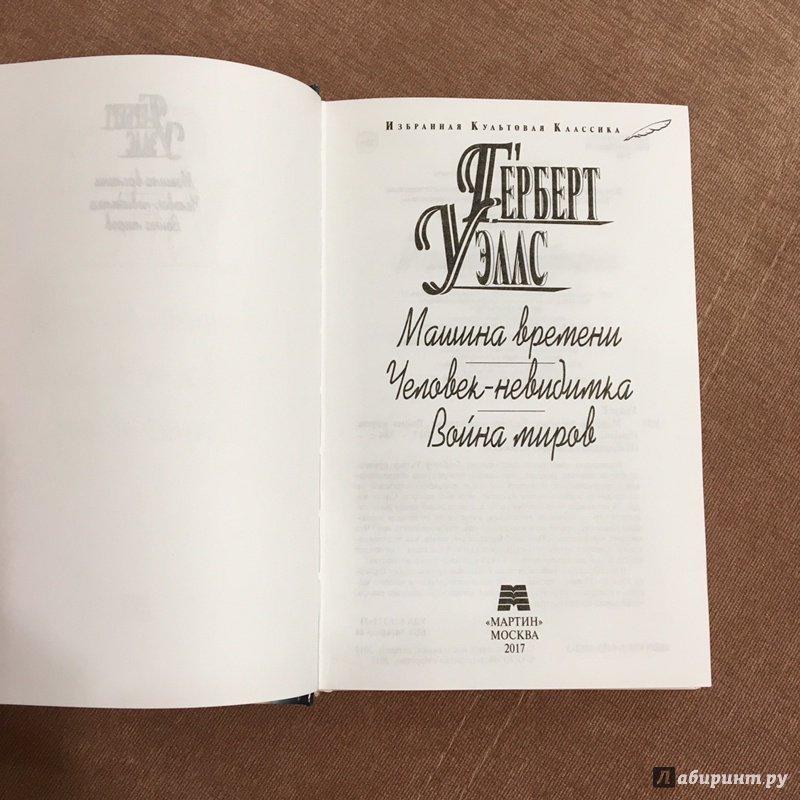 Избранная Культовая Классика
Герберт
Уэллс
Машина времени
Человек-невидимка
Война миров
«МАРТИН»
МОСКВА
2017
Лабиринт.ру